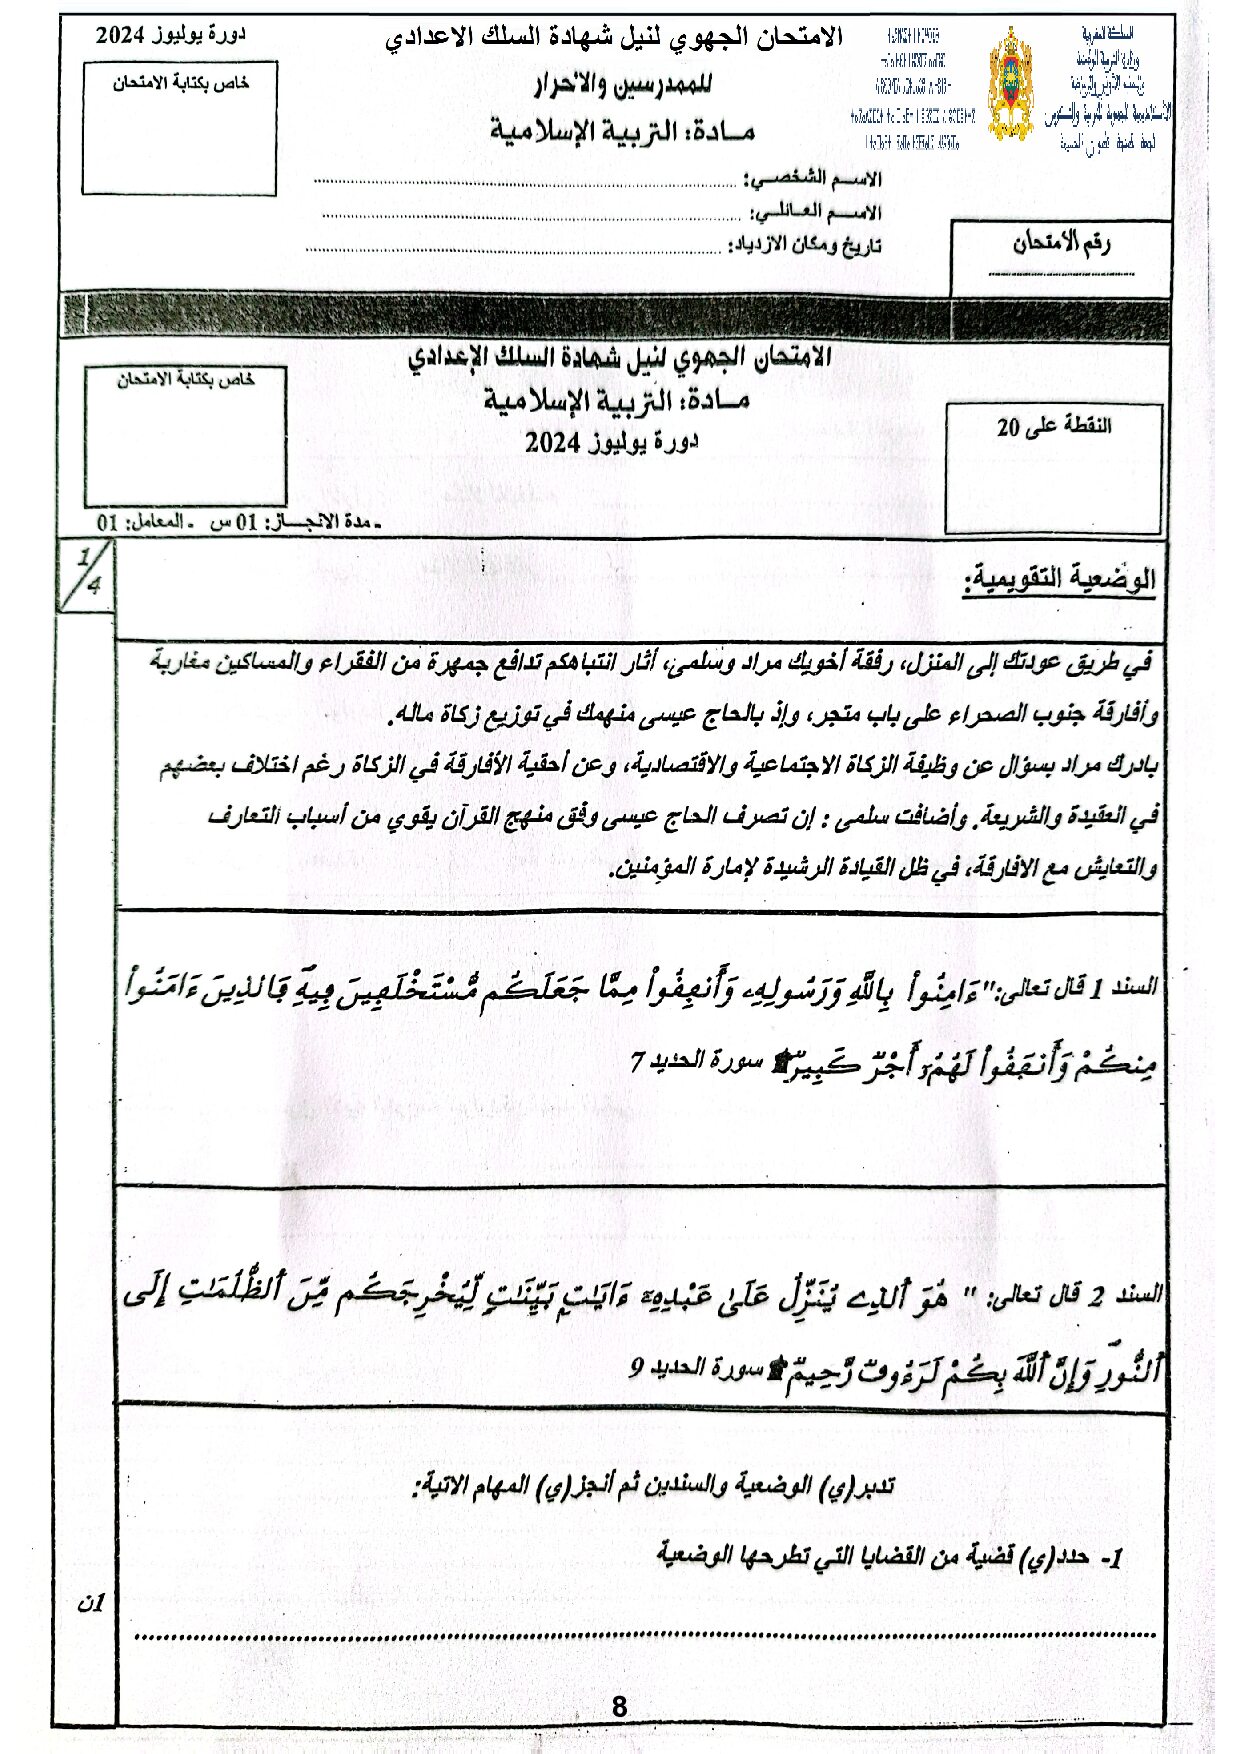 المملكة المغربية
وزارة التربية الوطنية
والتعليم الأولي والرياضة
الأكاديمية الجهوية للتربية والتكوين
الامتحان الجهوي لنيل شهادة السلك الاعدادي
للممدرسين والأحرار
مـادة: التربية الإسلامية
دورة يوليوز 2024
خاص بكتابة الامتحان
الاسـم الشخصـي:
الاسـم العـائلـي:
تاريخ ومكان الازدياد:
رقم الأمتحان
الامتحان الجهوي لنيل شهادة السلك الإعدادي
مـادة: التربية الإسلامية
دورة يوليوز 2024
خاص بكتابة الامتحان
النقطة على 20
- مدة الانجـاز: 01 س - المعامل: 01
1/4
الوضعية التقويمية:
في طريق عودتك إلى المنزل، رفقة أخويك مراد وسلمى، أثار انتباهكم تدافع جمهرة من الفقراء والمساكين مغاربة
وأفارقة جنوب الصحراء على باب متجر، وإذ بالحاج عيسى منهمك في توزيع زكاة ماله.
بادرك مراد بسؤال عن وظيفة الزكاة الاجتماعية والاقتصادية، وعن أحقية الأفارقة في الزكاة رغم اختلاف بعضهم
في العقيدة والشريعة. وأضافت سلمى : إن تصرف الحاج عيسى وفق منهج القرآن يقوي من أسباب التعارف
والتعايش مع الافارقة، في ظل القيادة الرشيدة لإمارة المؤمنين.
السند 1 قال تعالى:"ءَامِنُواْ بِاللَّهِ وَرَسُولِهِۦ وَأَنفِقُواْ مِمَّا جَعَلَكُم مُّسْتَخْلَفِينَ فِيهِ فَالذِينَ ءَامَنُواْ
مِنكُمْ وَأَنفَقُواْ لَهُمُۥ أَجْرٌ كَبِيرٌ سورة الحديد 7
السند 2 قال تعالى: " هُوَ اَلذِے يُنَزِّلُ عَلَىٰ عَبْدِهِۦٓ ءَايَٰتٍ بَيِّنَٰتٍ لِّيُخْرِجَكُم مِّنَ اَلظُّلُمَٰتِ إِلَى
اَلنُّورِ وَإِنَّ اَللَّهَ بِكُمْ لَرَءُوفٌ رَّحِيمٌ سورة الحديد 9
تدبر(ي) الوضعية والسندين ثم أنجز(ي) المهام الاتية:
1- حدد(ي) قضية من القضايا التي تطرحها الوضعية
1ن
8